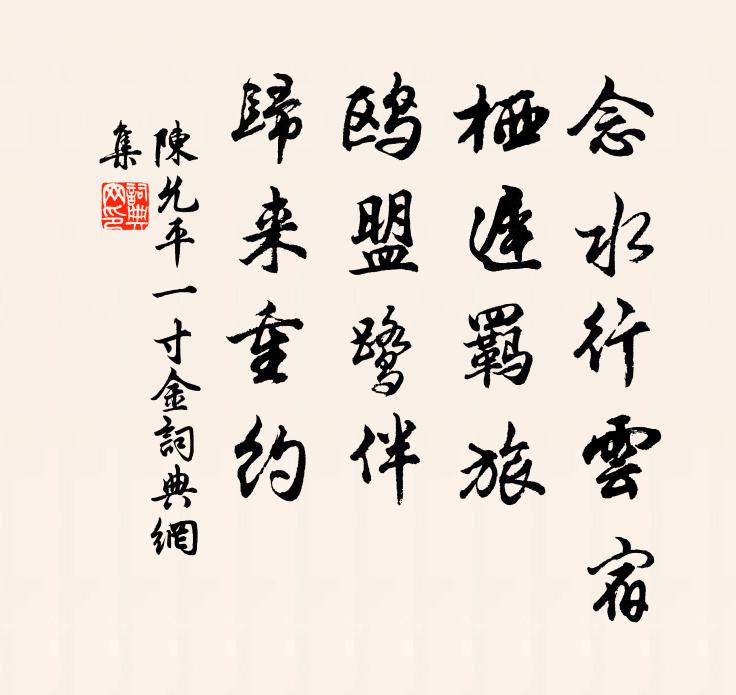 念水行雲宿
栖遲羇旅
鸥盟鹭伴
歸来重约
陳允平一寸金詞典網
集
詞典
网印